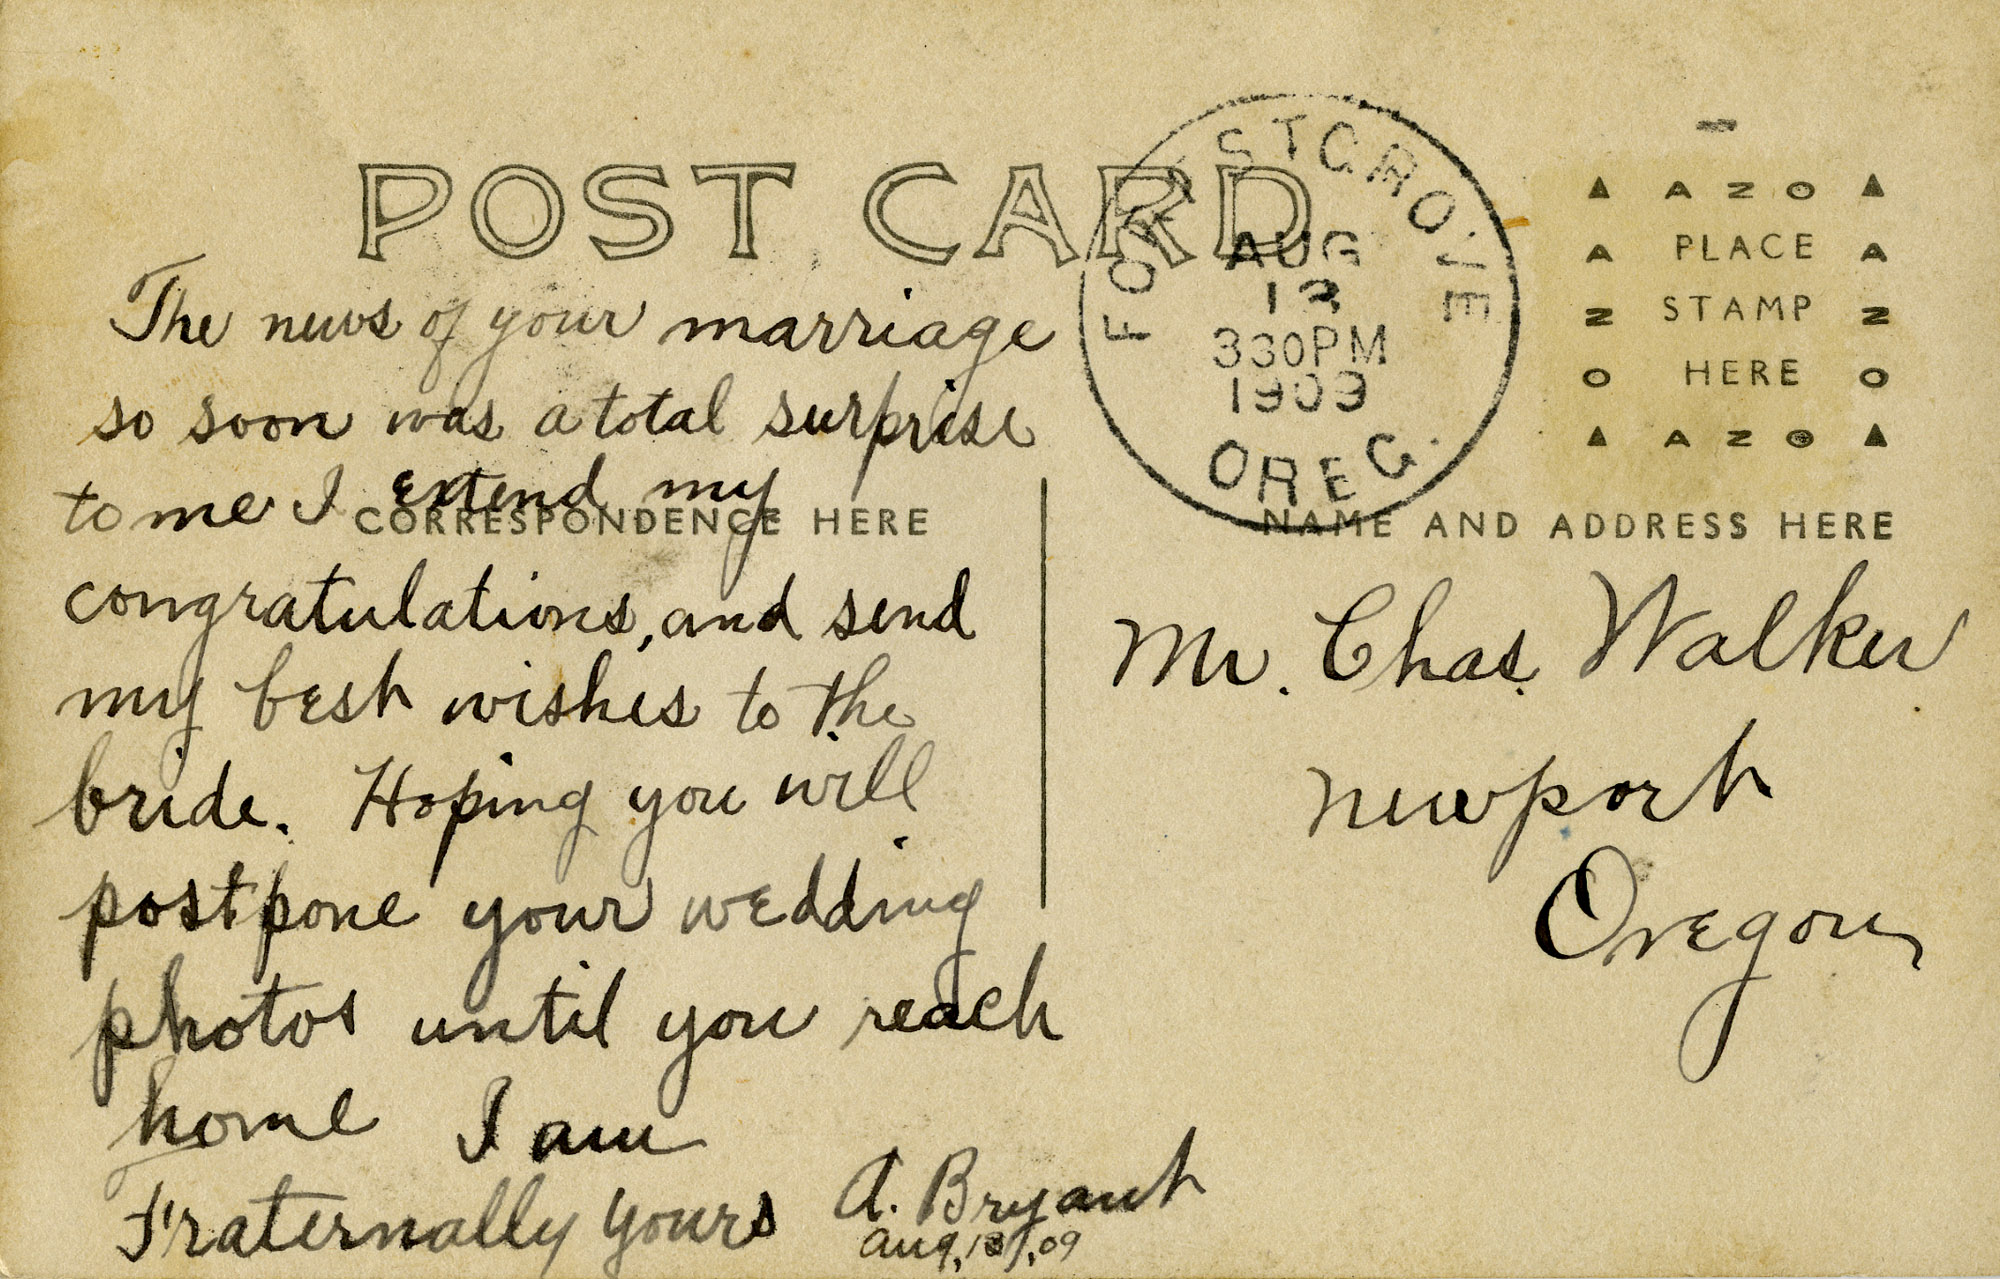 POST CARD
The news of your marriage
so soon was a total surprise
to me I extend my
congratulations, and send
my best wishes to the
bride. Hoping you will
postpone your wedding
photos until you reach
home I am
Fraternally yours A. Bryant
Aug. 13, 09
CORRESPONDENCE HERE
FOREST GROVE
AUG
13
330PM
1909
OREG.
▲ AZO ▲
AZO PLACE STAMP HERE AZO
▲ AZO ▲
NAME AND ADDRESS HERE
Mr. Chas. Walker
Newport
Oregon